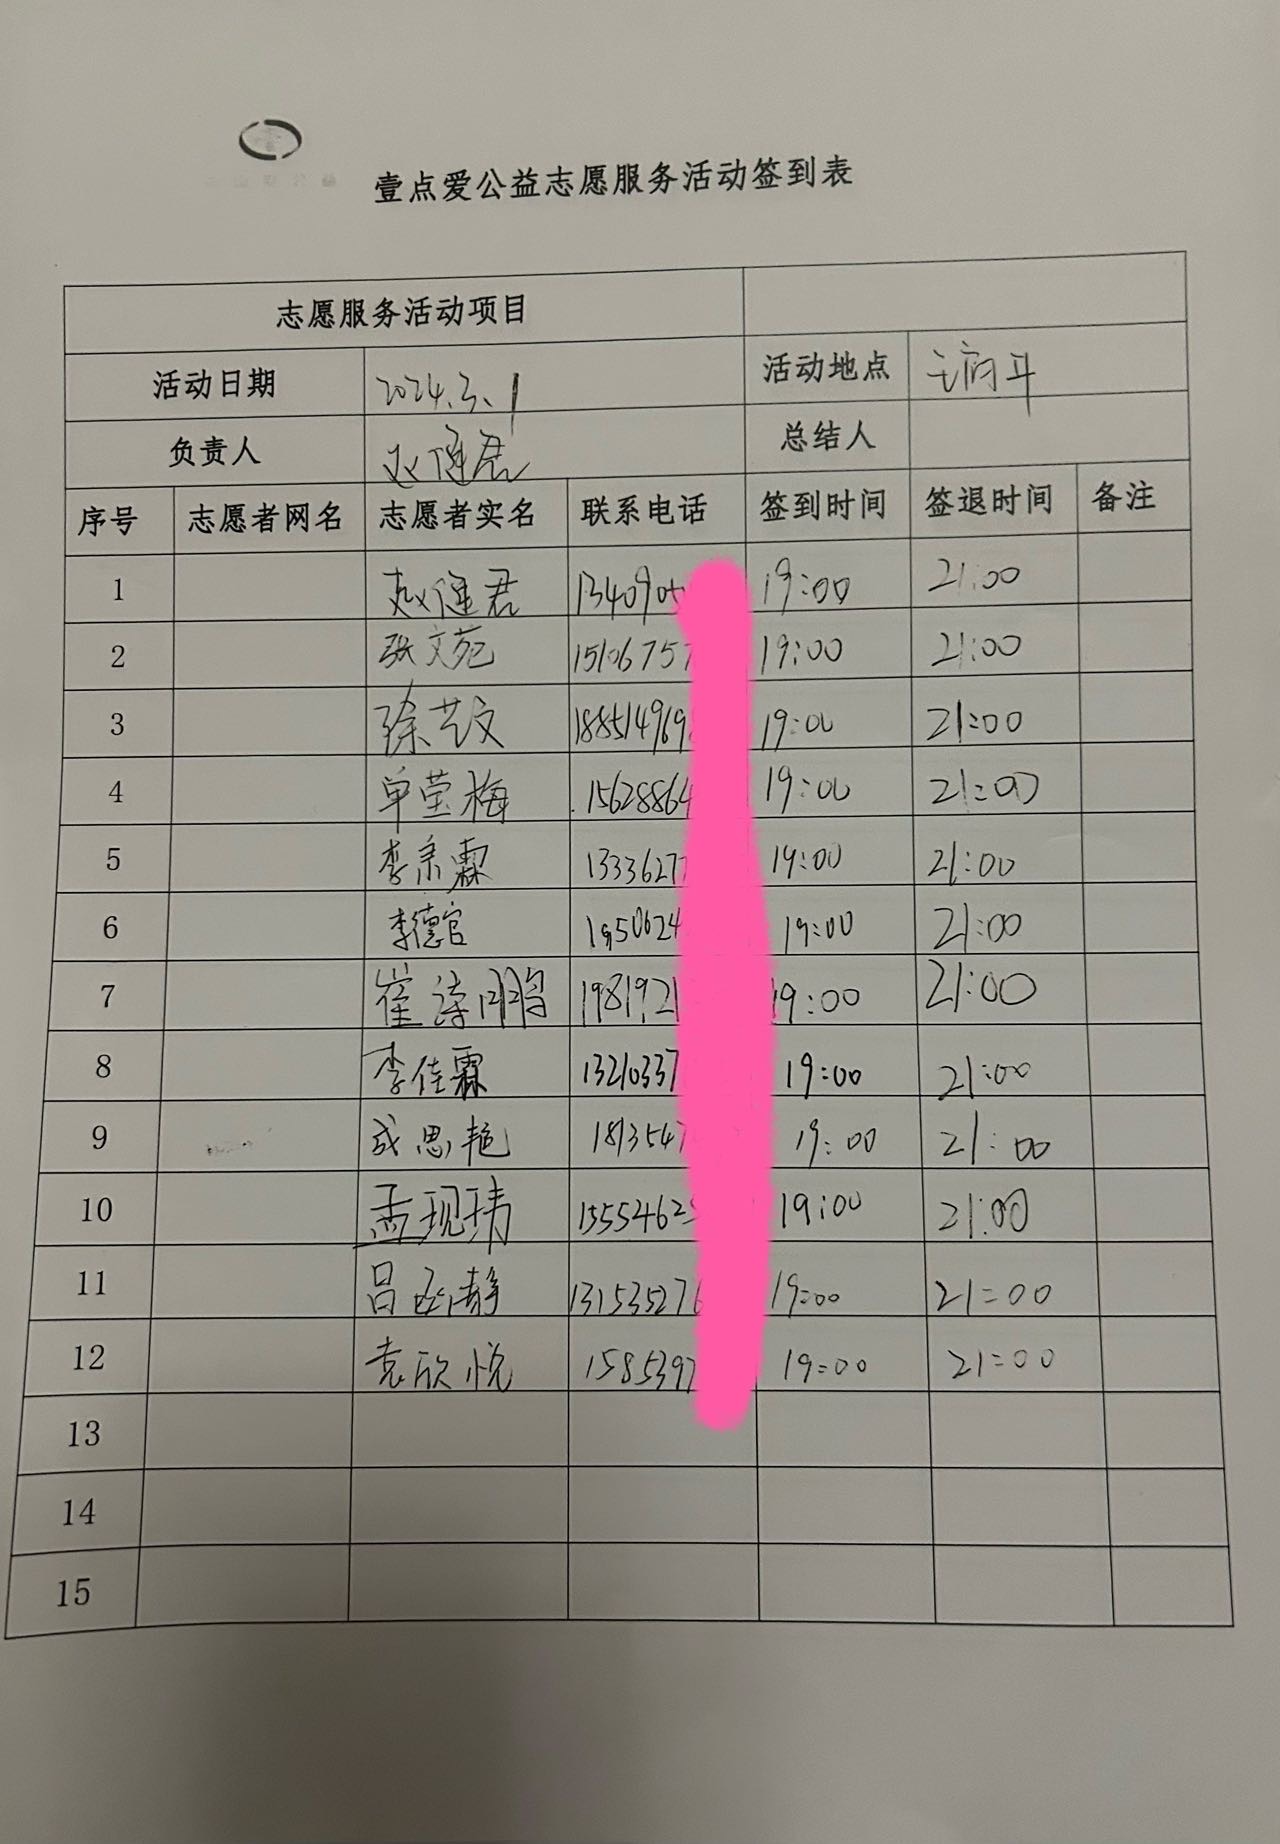 壹点爱公益志愿服务活动签到表
志愿服务活动项目
活动日期 2024.3.1 活动地点
负责人 赵健君 总结人
序号 志愿者网名 志愿者实名 联系电话 签到时间 签退时间 备注
1 赵健君 1340905 19:00 21:00
2 张文苑 15106757 19:00 21:00
3 徐艺文 188514969 19:00 21:00
4 单莹梅 15628864 19:00 21:00
5 李秉霖 1333627 19:00 21:00
6 李德官 1950624 19:00 21:00
7 崔涛鹏 1981921 19:00 21:00
8 李佳霖 13210337 19:00 21:00
9 成思艳 1813547 19:00 21:00
10 孟现玮 1555462 19:00 21:00
11 吕函静 131535276 19:00 21:00
12 袁欣悦 1585397 19:00 21:00
13
14
15